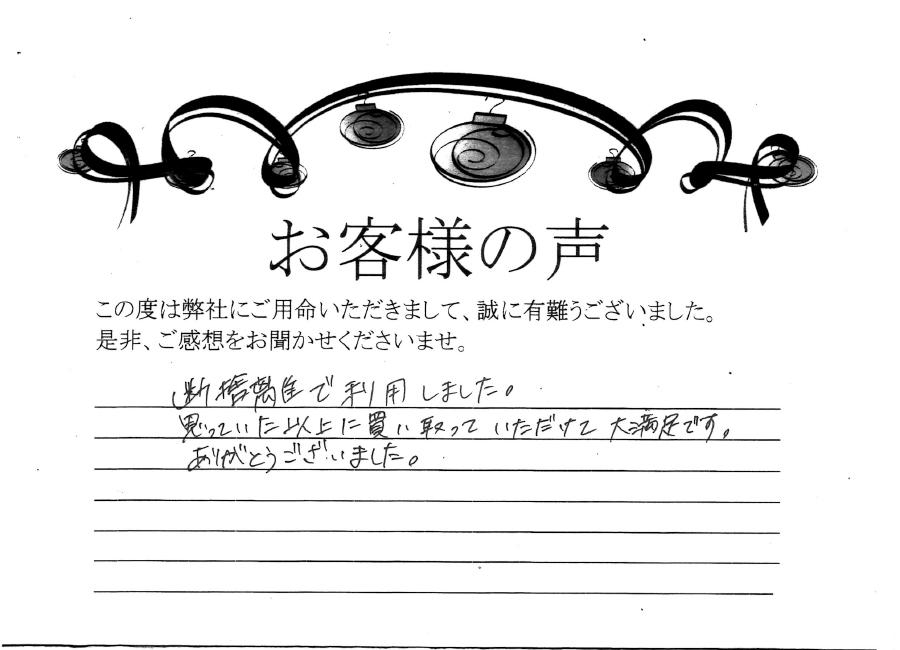 お客様の声
この度は弊社にご用命いただきまして、誠に有難うございました。
是非、ご感想をお聞かせくださいませ。
断捨離で利用しました。
思っていた以上に買い取っていただけて大満足です。
ありがとうございました。